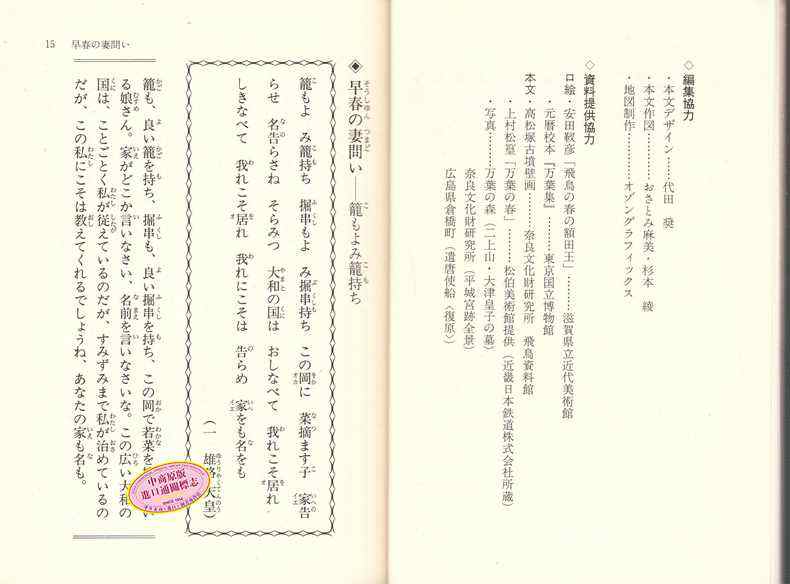 ◇編集協力
・本文デザイン……代田 奨
・本文作図…………おさとみ麻美・杉本 綾
・地図制作…………オゾングラフィックス
◇資料提供協力
口絵・安田靫彦「飛鳥の春の額田王」………滋賀県立近代美術館
・元暦校本『万葉集』………東京国立博物館
本文・高松塚古墳壁画………奈良文化財研究所 飛鳥資料館
・上村松篁「万葉の春」………松伯美術館提供（近畿日本鉄道株式会社所蔵）
・写真………万葉の森（二上山・大津皇子の墓）
奈良文化財研究所（平城宮跡全景）
広島県倉橋町（遣唐使船〈復原〉）
15 早春の妻問い
◈早春の妻問い――籠もよみ籠持ち
籠もよ み籠持ち 掘串もよ み掘串持ち この岡に 菜摘ます子 家告
らせ 名告らさね そらみつ 大和の国は おしなべて 我れこそ居れ
しきなべて 我れこそ居れ 我れにこそは 告らめ 家をも名をも
（一 雄略天皇）
籠も、良い籠を持ち、掘串も、良い掘串を持ち、この岡で若菜を い
る娘さん。家がどこか言いなさい、名前を言いなさいな。この広い大和の
国は、ことごとく私が従えているのだが、すみずみまで私が治めているの
だが、この私にこそは教えてくれるでしょうね、あなたの家も名も。
中商原版
進口通關標志